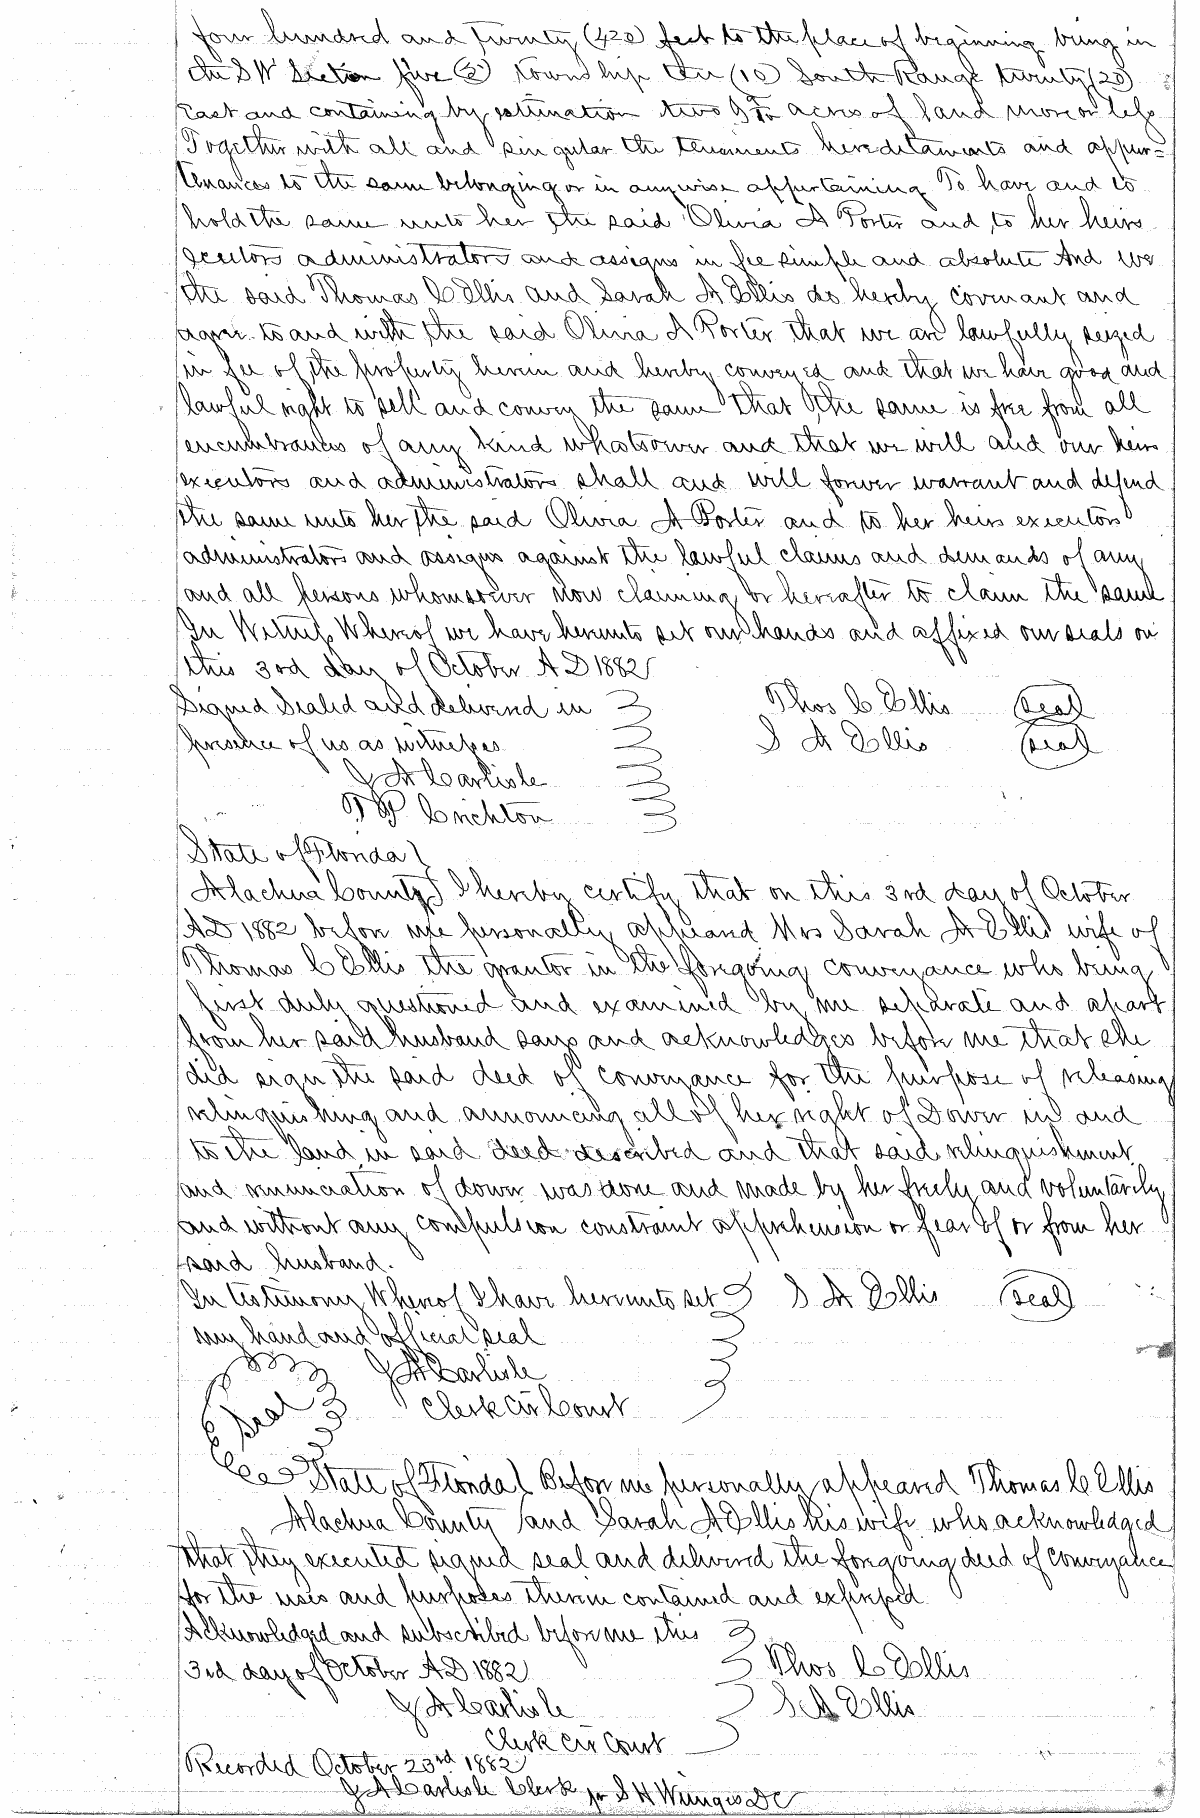 four hundred and twenty (420) feet to the place of beginning being in
the SW Section five township ten (10) South Range twenty (20)
East and containing by estimation two acres of land more or less
Together with all and singular the tenements hereditaments and appur=
tenances to the same belonging or in anywise appertaining To have and to
hold the same unto her the said Olivia A Porter and to her heirs
administrators and assigns in fee simple and absolute And we
the said Thomas C Ellis and Sarah A Ellis do hereby covenant and
agree to and with the said Olivia A Porter that we are lawfully seized
in fee of the property herein and hereby conveyed and that we have good and
lawful right to sell and convey the same that the same is free from all
encumbrances of any kind whatsoever and that we will and our heirs
executors and administrators shall and will forever warrant and defend
the same unto her the said Olivia A Porter and to her heirs executors
administrators and assigns against the lawful claims and demands of any
and all persons whomsoever now claiming or hereafter to claim the same
In Witness Whereof we have hereunto set our hands and affixed our seals on
this 3rd day of October A D 1882
Signed Sealed and delivered in Thos C Ellis (seal)
presence of us as witnesses S A Ellis (seal)
J A Carlisle
Crichton
State of Florida
Alachua County I hereby certify that on this 3rd day of October
AD 1882 before me personally appeared Mrs Sarah A Ellis wife of
Thomas C Ellis the grantor in the foregoing conveyance who being
first duly questioned and examined by me separate and apart
from her said husband says and acknowledges before me that she
did sign the said deed of conveyance for the purpose of releasing
relinquishing and announcing all of her right of Dower in and
to the land in said deed described and that said relinquishment
and renunciation of dower was done and made by her freely and voluntarily
and without any compulsion constraint apprehension or fear of or from her
said husband.
In testimony Whereof I have hereunto set S A Ellis (seal)
my hand and official seal
J A Carlisle
Seal Clerk Cir Court
State of Florida Before me personally appeared Thomas C Ellis
Alachua County and Sarah A Ellis his wife who acknowledged
that they executed signed seal and delivered the foregoing deed of conveyance
for the uses and purposes therein contained and expressed
Acknowledged and subscribed before me this
3rd day of October A D 1882 Thos C Ellis
J A Carlisle S A Ellis
Clerk Cir Court
Recorded October 23rd 1882
J A Carlisle Clerk pr S H DC